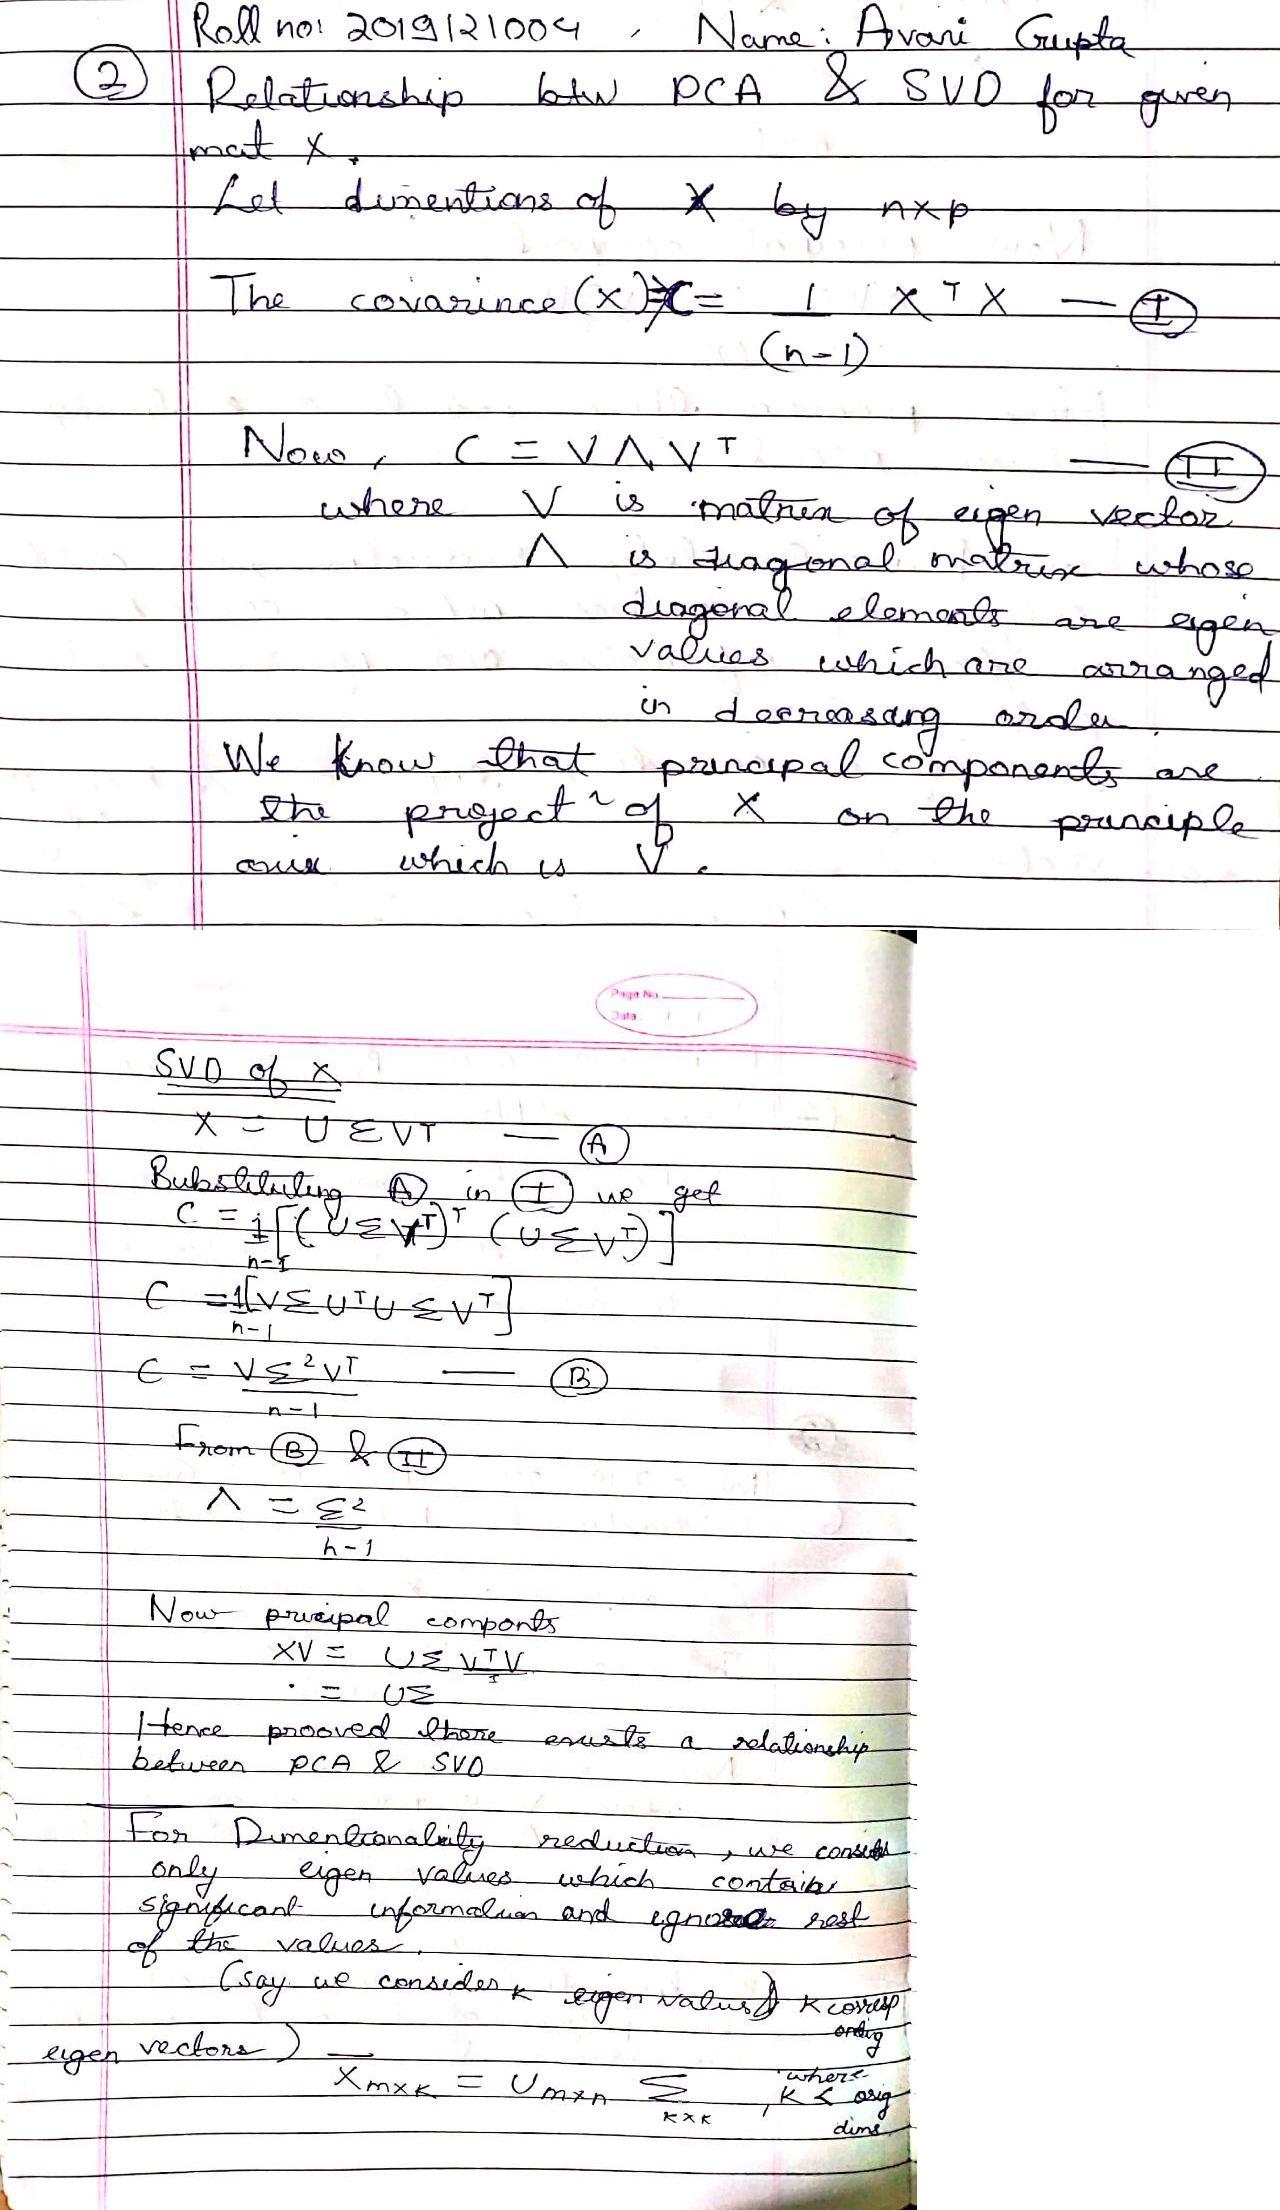 Roll no: 2019121004, Name: Avani Gupta
② Relationship btw PCA & SVD for given
mat X.
Let dimentions of X by n×p
The covarince (X) C = 1/(n-1) X^T X — Ⓘ
Now, C = VΛV^T — (II)
where V is matrix of eigen vector
Λ is diagonal matrix whose
diagonal elements are eigen
values which are arranged
in decreasing order.
We know that principal components are
the project^n of X on the principle
axis which is V.
Page No.
Date / /
SVD of X
X = UΣV^T — Ⓐ
Bubstituting Ⓐ in Ⓘ we get
C = 1/(n-1) [(UΣV^T)^T (UΣV^T)]
C = 1/(n-1) [VΣU^TUΣV^T]
C = VΣ²V^T/(n-1) — Ⓑ
From Ⓑ & (II)
Λ = Σ²/(n-1)
Now pricipal componts
XV = UΣ V^TV
I
= UΣ
Hence prooved there exists a relationship
between PCA & SVD
For Dimentionality reduction, we consider
only eigen values which contain
significant information and ignore rest
of the values.
(say we consider k eigen values & k corresp
onding
eigen vectors)
X̄ m×k = U m×n Σ k×k , where
k < orig
dims